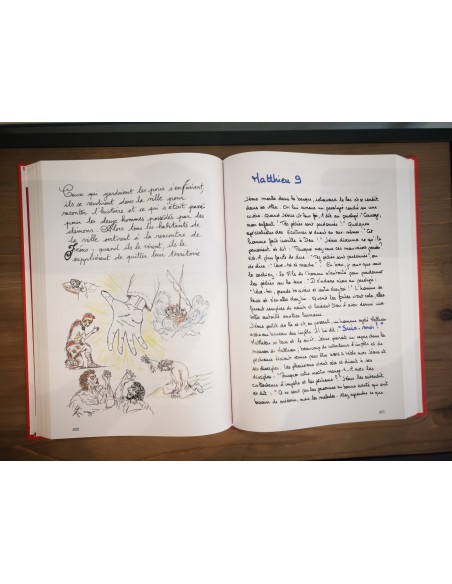 Ceux qui gardaient les porcs s'enfuirent,
ils se rendirent dans la ville pour
raconter l'histoire et ce qui s'était passé
pour les deux hommes possédés par les
démons. Alors tous les habitants de
la ville sortirent à la rencontre de
Jésus ; quand ils le virent, ils le
supplièrent de quitter leur territoire
Matthieu 9
Jésus monta dans la barque, retraversa le lac et se rendit
dans sa ville. On lui amena un paralysé couché sur une
civière. Quand Jésus vit leur foi, il dit au paralysé "Courage,
mon enfant ! Tes péchés sont pardonnés !" Quelques
spécialistes des Ecritures se dirent en eux-mêmes : "Cet
homme fait insulte à Dieu !" Jésus discerna ce qu'ils
pensaient et dit : "Pourquoi avez-vous ces mauvaises pensées ?
de dire : "Lève-toi et marche" ? Eh bien, je veux que vous
le sachiez, le Fils de l'homme a l'autorité pour pardonner
les péchés sur la terre." Il s'adressa alors au paralysé :
"Lève-toi, prends ta civière et rentre chez toi !" L'homme se
leva et s'en alla chez lui. Quand les foules virent cela, elles
Jésus partit de là et vit, en passant, un homme appelé Matthieu
"Suis-moi !"
Matthieu se leva et le suivit. Jésus prenait un repas dans la
maison de Matthieu ; beaucoup de collecteurs d'impôts et de
pécheurs étaient venus pour être à table avec Jésus et
ses disciples. Les pharisiens virent cela et dirent à ses
disciples : "Pourquoi votre maître mange-t-il avec les
collecteurs d'impôts et les pécheurs ?" Jésus les entendit
et dit : "Ce ne sont pas les personnes en bonne santé qui ont
besoin de médecin, mais les malades. Allez apprendre ce que